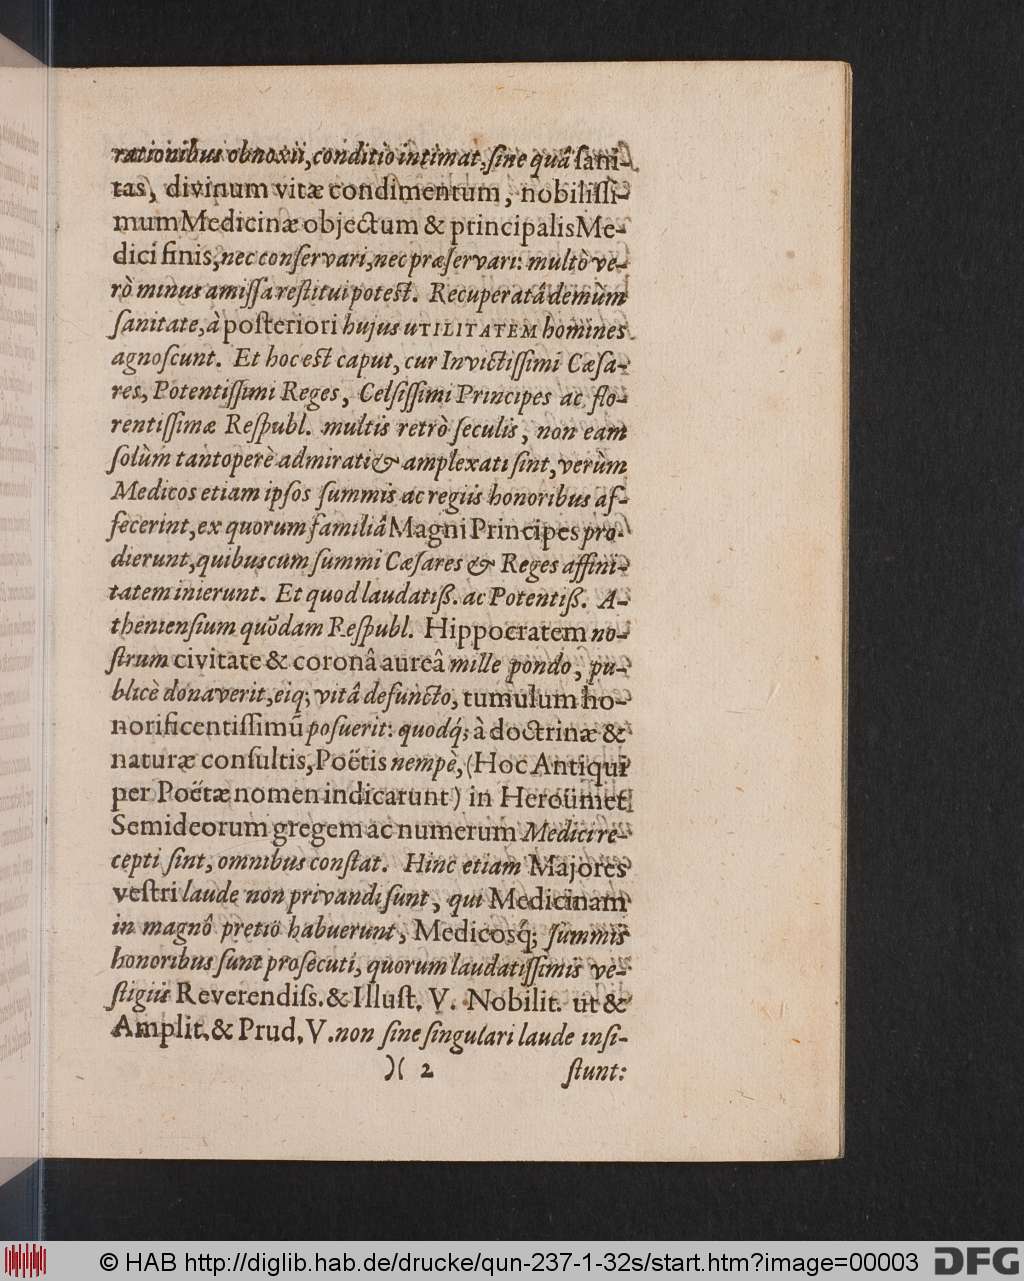 rationibus obnoxii, conditio intimat, ſine quâ ſani-
tas, divinum vitæ condimentum, nobiliſſi-
mum Medicinæ objectum & principalis Me-
dici finis, nec conſervari, nec præſervari: multò ve-
rò minus amiſſa reſtitui poteſt. Recuperatâ demùm
ſanitate, à poſteriori hujus UTILITATEM homines
agnoſcunt. Et hoc eſt caput, cur Invictiſſimi Cæſa-
res, Potentiſſimi Reges, Celſiſſimi Principes ac flo-
rentiſſimæ Reſpubl. multis retrò ſeculis, non eam
ſolùm tantoperè admirati & amplexati ſint, verùm
Medicos etiam ipſos ſummis ac regiis honoribus af-
fecerint, ex quorum familiâ Magni Principes pro-
dierunt, quibuscum ſummi Cæſares & Reges affini-
tatem inierunt. Et quod laudatiß. ac Potentiß. A-
thenienſium quõdam Reſpubl. Hippocratem no-
ſtrum civitate & coronâ aureâ mille pondo, pu-
blicè donaverit, eiq; vitâ defuncto, tumulum ho-
norificentiſſimū poſuerit: quodq́; à doctrinæ &
naturæ conſultis, Poëtis nempè, (Hoc Antiqui
per Poëtæ nomen indicarunt) in Heroüm et
Semideorum gregem ac numerum Medici re-
cepti ſint, omnibus conſtat. Hinc etiam Majores
veſtri laude non privandi ſunt, qui Medicinam
in magnô pretiô habuerunt, Medicosq́; ſummis
honoribus ſunt proſecuti, quorum laudatiſſimis ve-
ſtigiis Reverendiſs. & Illuſt. V. Nobilit. ut &
Amplit. & Prud. V. non ſine ſingulari laude inſi-
)( 2 ſtunt:
© HAB http://diglib.hab.de/drucke/qun-237-1-32s/start.htm?image=00003 DFG